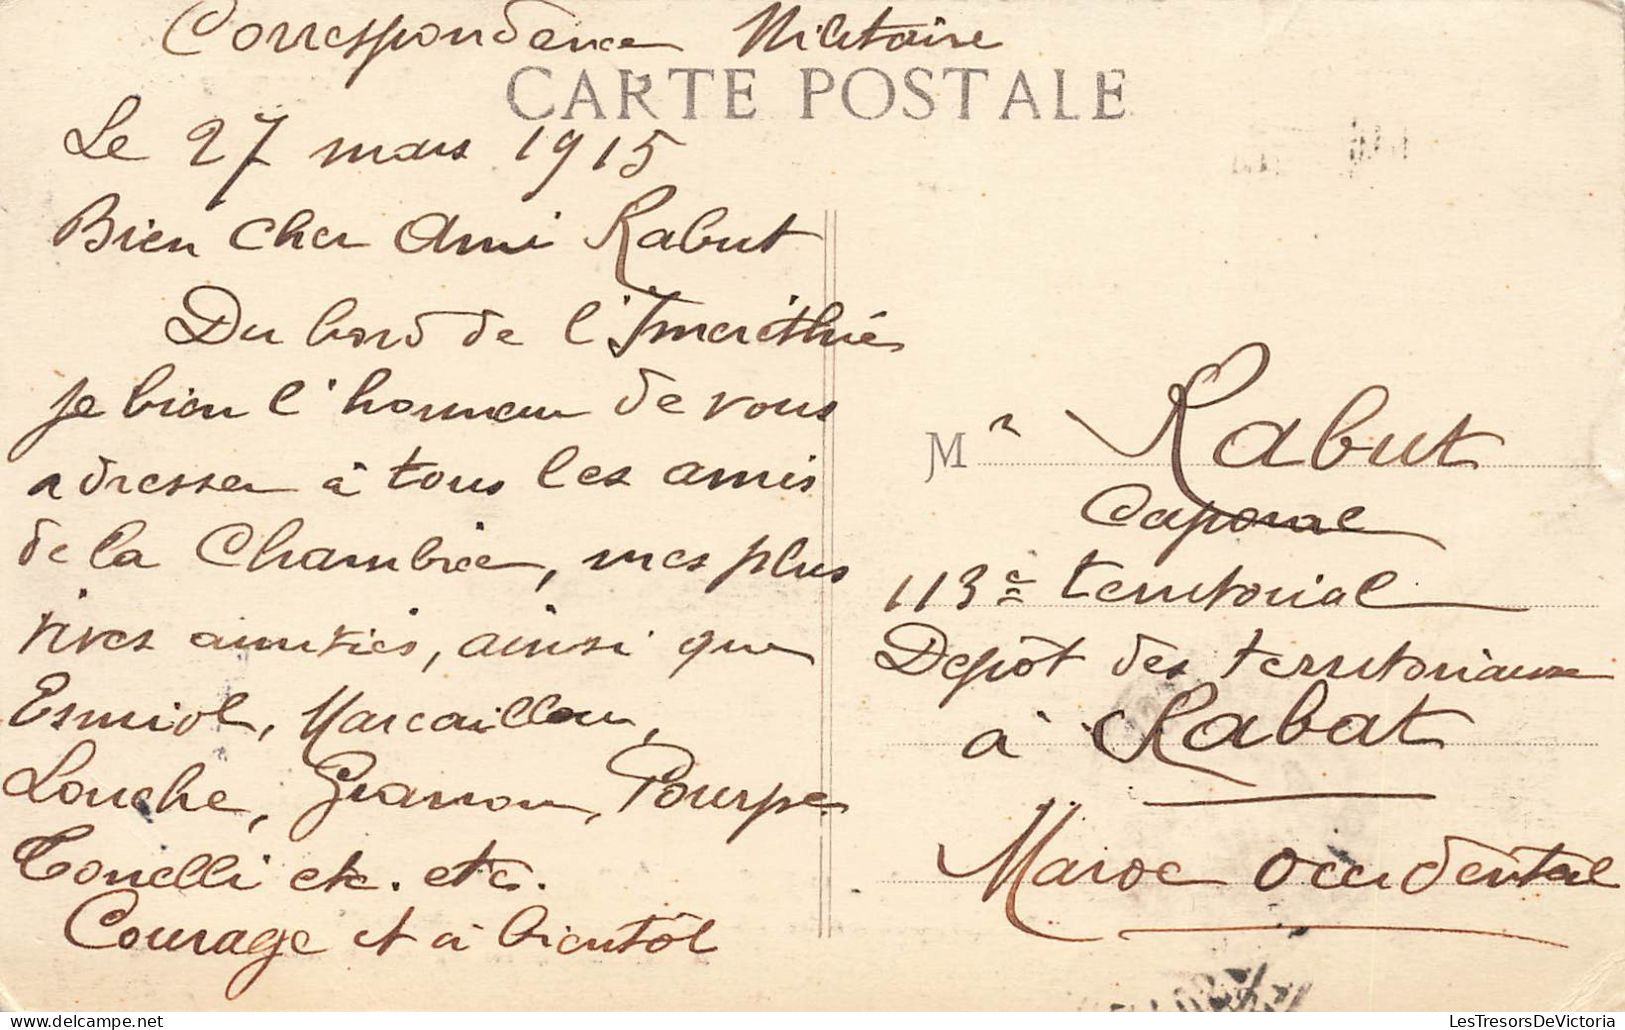 Correspondance Militaire
CARTE POSTALE
Le 27 mars 1915
Bien cher Ami Rabut
Du bord de l'Imerithie
je bien l'honneur de vous
adresser à tous les amis
de la Chambrée, mes plus
vives amitiés, ainsi que
Esmiol, Marcaillou,
Louche, Granon, Pourpe
Tonelli etc. etc.
Courage et à bientôt
Mr Rabut
Caporal
113e territorial
Depôt des territoriaux
à Rabat
Maroc Occidental
LesTresorsDeVictoria